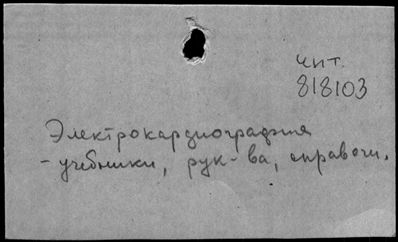 чит.
818103
Электрокардиография
- учебники, рук-ва, справочн.